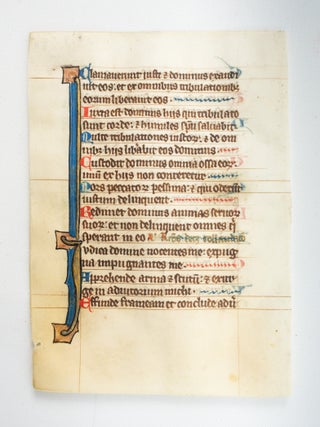 Clamauerunt iusti & dominus exaudi
uit eos: et ex omnibus tribulationib;
eorum liberauit eos.
Iuxta est dominus hiis qui tribulato
sunt corde: & humiles spū saluabit.
Multe tribulationes iustoꝝ: & de om
nib; hiis liberabit eos dominus
Custodit dominus omnia ossa eoꝝ:
unum ex hiis non conteretur.
Mors peccatoꝝ pessima: & qui oderūt
iustum delinquent.
Redimet dominus animas seruoꝝ
suoꝝ: et non delinquent omnes q̇
sperant in eo
Iudica domine nocentes me: expug
na impugnantes me.
Apprehende arma & scutū: & exur
ge in adiutorium michi.
Effunde frameam et conclude adū